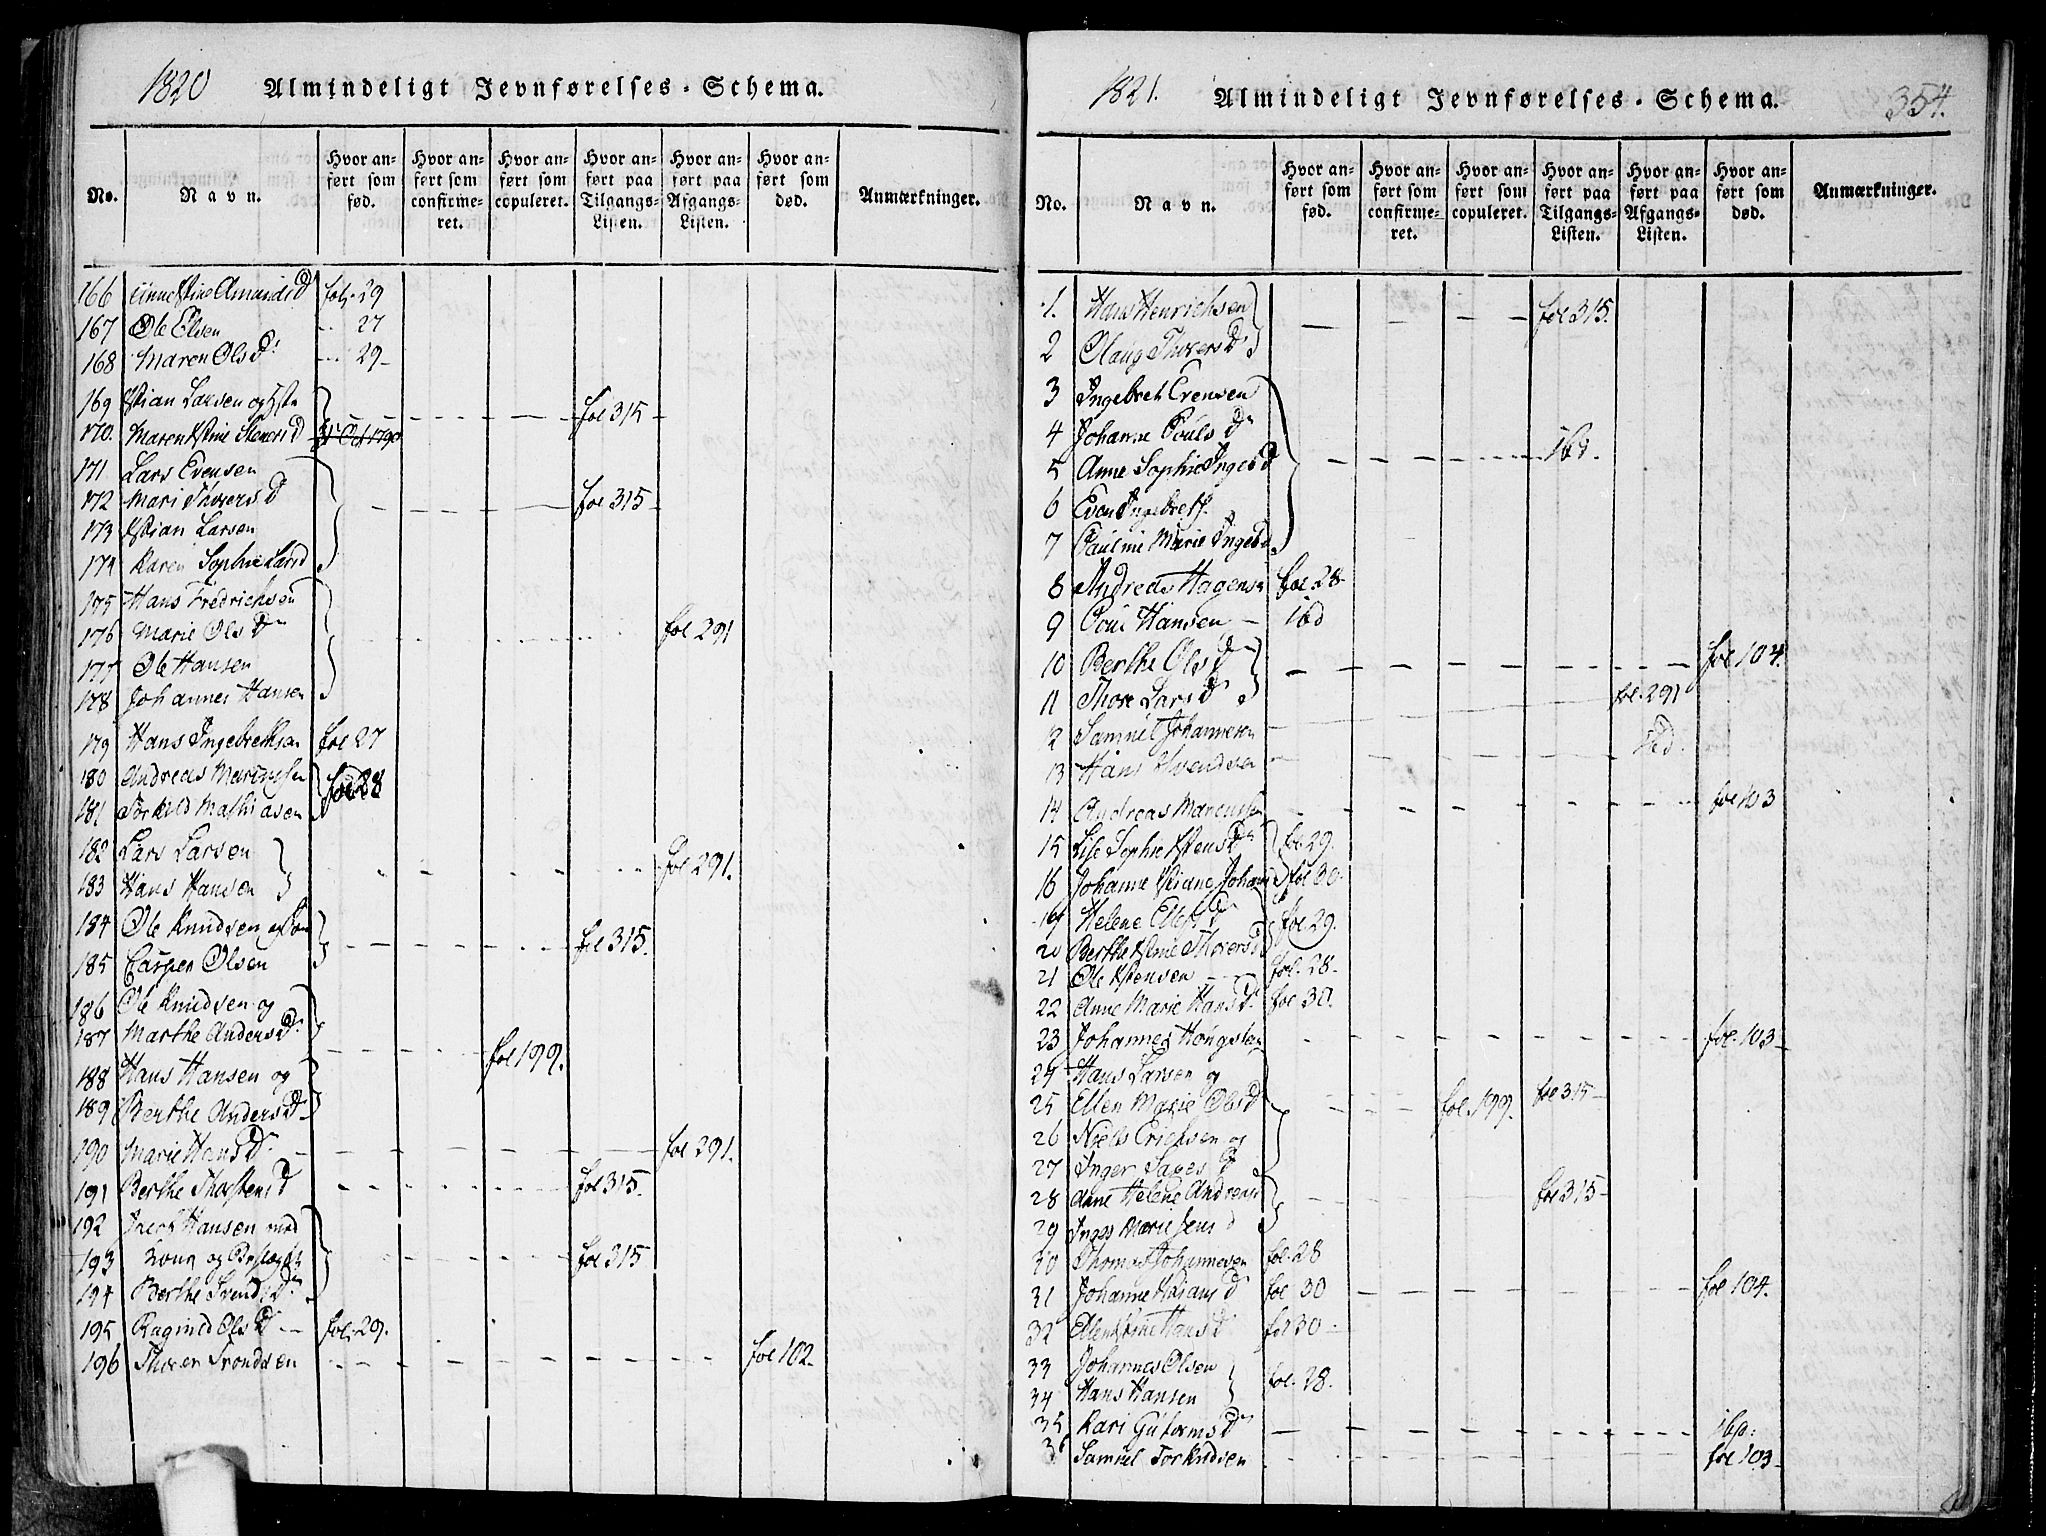 1820 Almindeligt Jevnførelses-Schema.
No. Navn. Hvor anført som fød. Hvor anført som confirmeret. Hvor anført som copuleret. Hvor anført paa Tilgangs-Listen. Hvor anført paa Afgangs-Listen. Hvor anført som død. Anmærkninger.
166 Anne Stine Amunds D fol. 29
167 Ole Olsen " 27
168 Maren Ols D. " 29
169 Xtian Larsen og Hstr
170. Maren Xstine Steners D fol 315
171 Lars Evensen
172 Mari Tovers D fol 315
173 Xstian Larsen
174 Karen Sophie Lars D
175 Hans Fredrichsen
176 Marie Ols D fol 291
177 Ole Hansen
178 Johannes Hansen
179 Hans Ingebrethsen fol 27
180 Andreas fol 28
181 Torkild Mathiasen
182 Lars Larsen fol 291.
183 Hans Hansen
184 Ole Knudsen og fol 315.
185 Casper Olsen
186 Ole Knudsen og
187 Marthe Anders D. fol 199.
188 Hans Hansen og
189 Berthe Anders D
190 Marie Hans D. fol 291.
191 Berthe Thorstens D fol 315.
192 Jacob Hansen med
193 Kone og fol 315
194 Berthe Svends D
195 Ragnild Ols D fol. 29.
196 Thorer Trondsen fol 102.
1821. Almindeligt Jevnførelses-Schema. 354.
No. Navn. Hvor anført som fød. Hvor anført som confirmeret. Hvor anført som copuleret. Hvor anført paa Tilgangs-Listen. Hvor anført paa Afgangs-Listen. Hvor anført som død. Anmærkninger.
1. Hans Henrichsen fol 315.
2 Olaug Thorers D
3 Ingebret Evensen
4 Johanne Pouls D
5 Anne Sophie Ingeb D ibd.
6 Even Ingebrets.
7 Pauline Marie Ingeb D
8 Andreas Hagens fol. 28
9 Poul Hansen ibd
10 Berthe Ols D fol 104.
11 Thore Lars D fol. 291
12 Samuel Johannesen ibd.
13 Hans Svendsen
14 Andreas Marcussen fol 103
15 Lise Sophie Xstens D fol 29.
16 Johanne Xstiane Johans D fol 30.
Helene D fol 29.
20 Berthe Xstine Thorers D
21 Ole Xstensen fol. 28
22 Anne Marie Hans D. fol 30.
23 Johannes fol. 103
24 Hans Larsen og
25 Ellen Marie Ols D fol. 199. fol 315
26 Niels Erichsen og
27 Inger D
28 Anne Helene Andreas D fol 315
29 Inger Marie Jens D
30 Thomas Johannesen fol. 28
31 Johanne D fol 30 fol 104.
32 Ellen Xstine Hans D fol 30
33 Johannes Olsen fol. 28.
34 Hans Hansen
35 Kari Gutorms D ibd:
36 Samuel Torkildsen fol 103